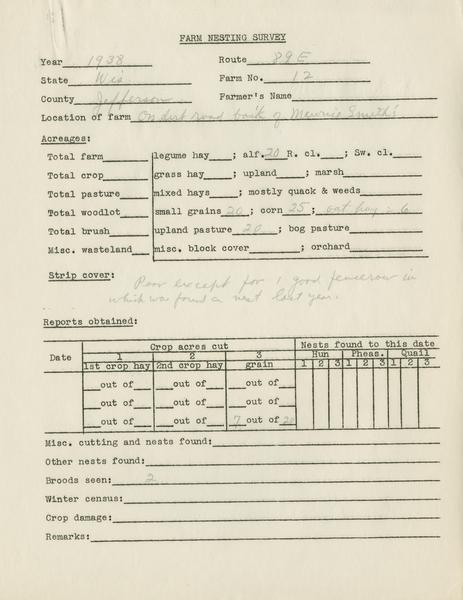 FARM NESTING SURVEY
Year 1938 Route 89E
State Wis Farm No. 12
County Jefferson Farmer's Name
Location of farm On dirt road back of Maurice Smith's
Acreages:
Total farm legume hay ; alf. 20 R. cl. ; Sw. cl.
Total crop grass hay ; upland ; marsh
Total pasture mixed hays ; mostly quack & weeds
Total woodlot small grains 20 ; corn 25 ; oat hay - 6
Total brush upland pasture 20 ; bog pasture
Misc. wasteland misc. block cover ; orchard
Strip cover:
Poor except for 1 good fencerow in
which was found a nest last year.
Reports obtained:
Crop acres cut Nests found to this date
Date 1 2 3 Hun Pheas. Quail
1st crop hay 2nd crop hay grain 1 2 3 1 2 3 1 2 3
out of out of out of
out of out of out of
out of out of 7 out of 20
Misc. cutting and nests found:
Other nests found:
Broods seen: 2
Winter census:
Crop damage:
Remarks: